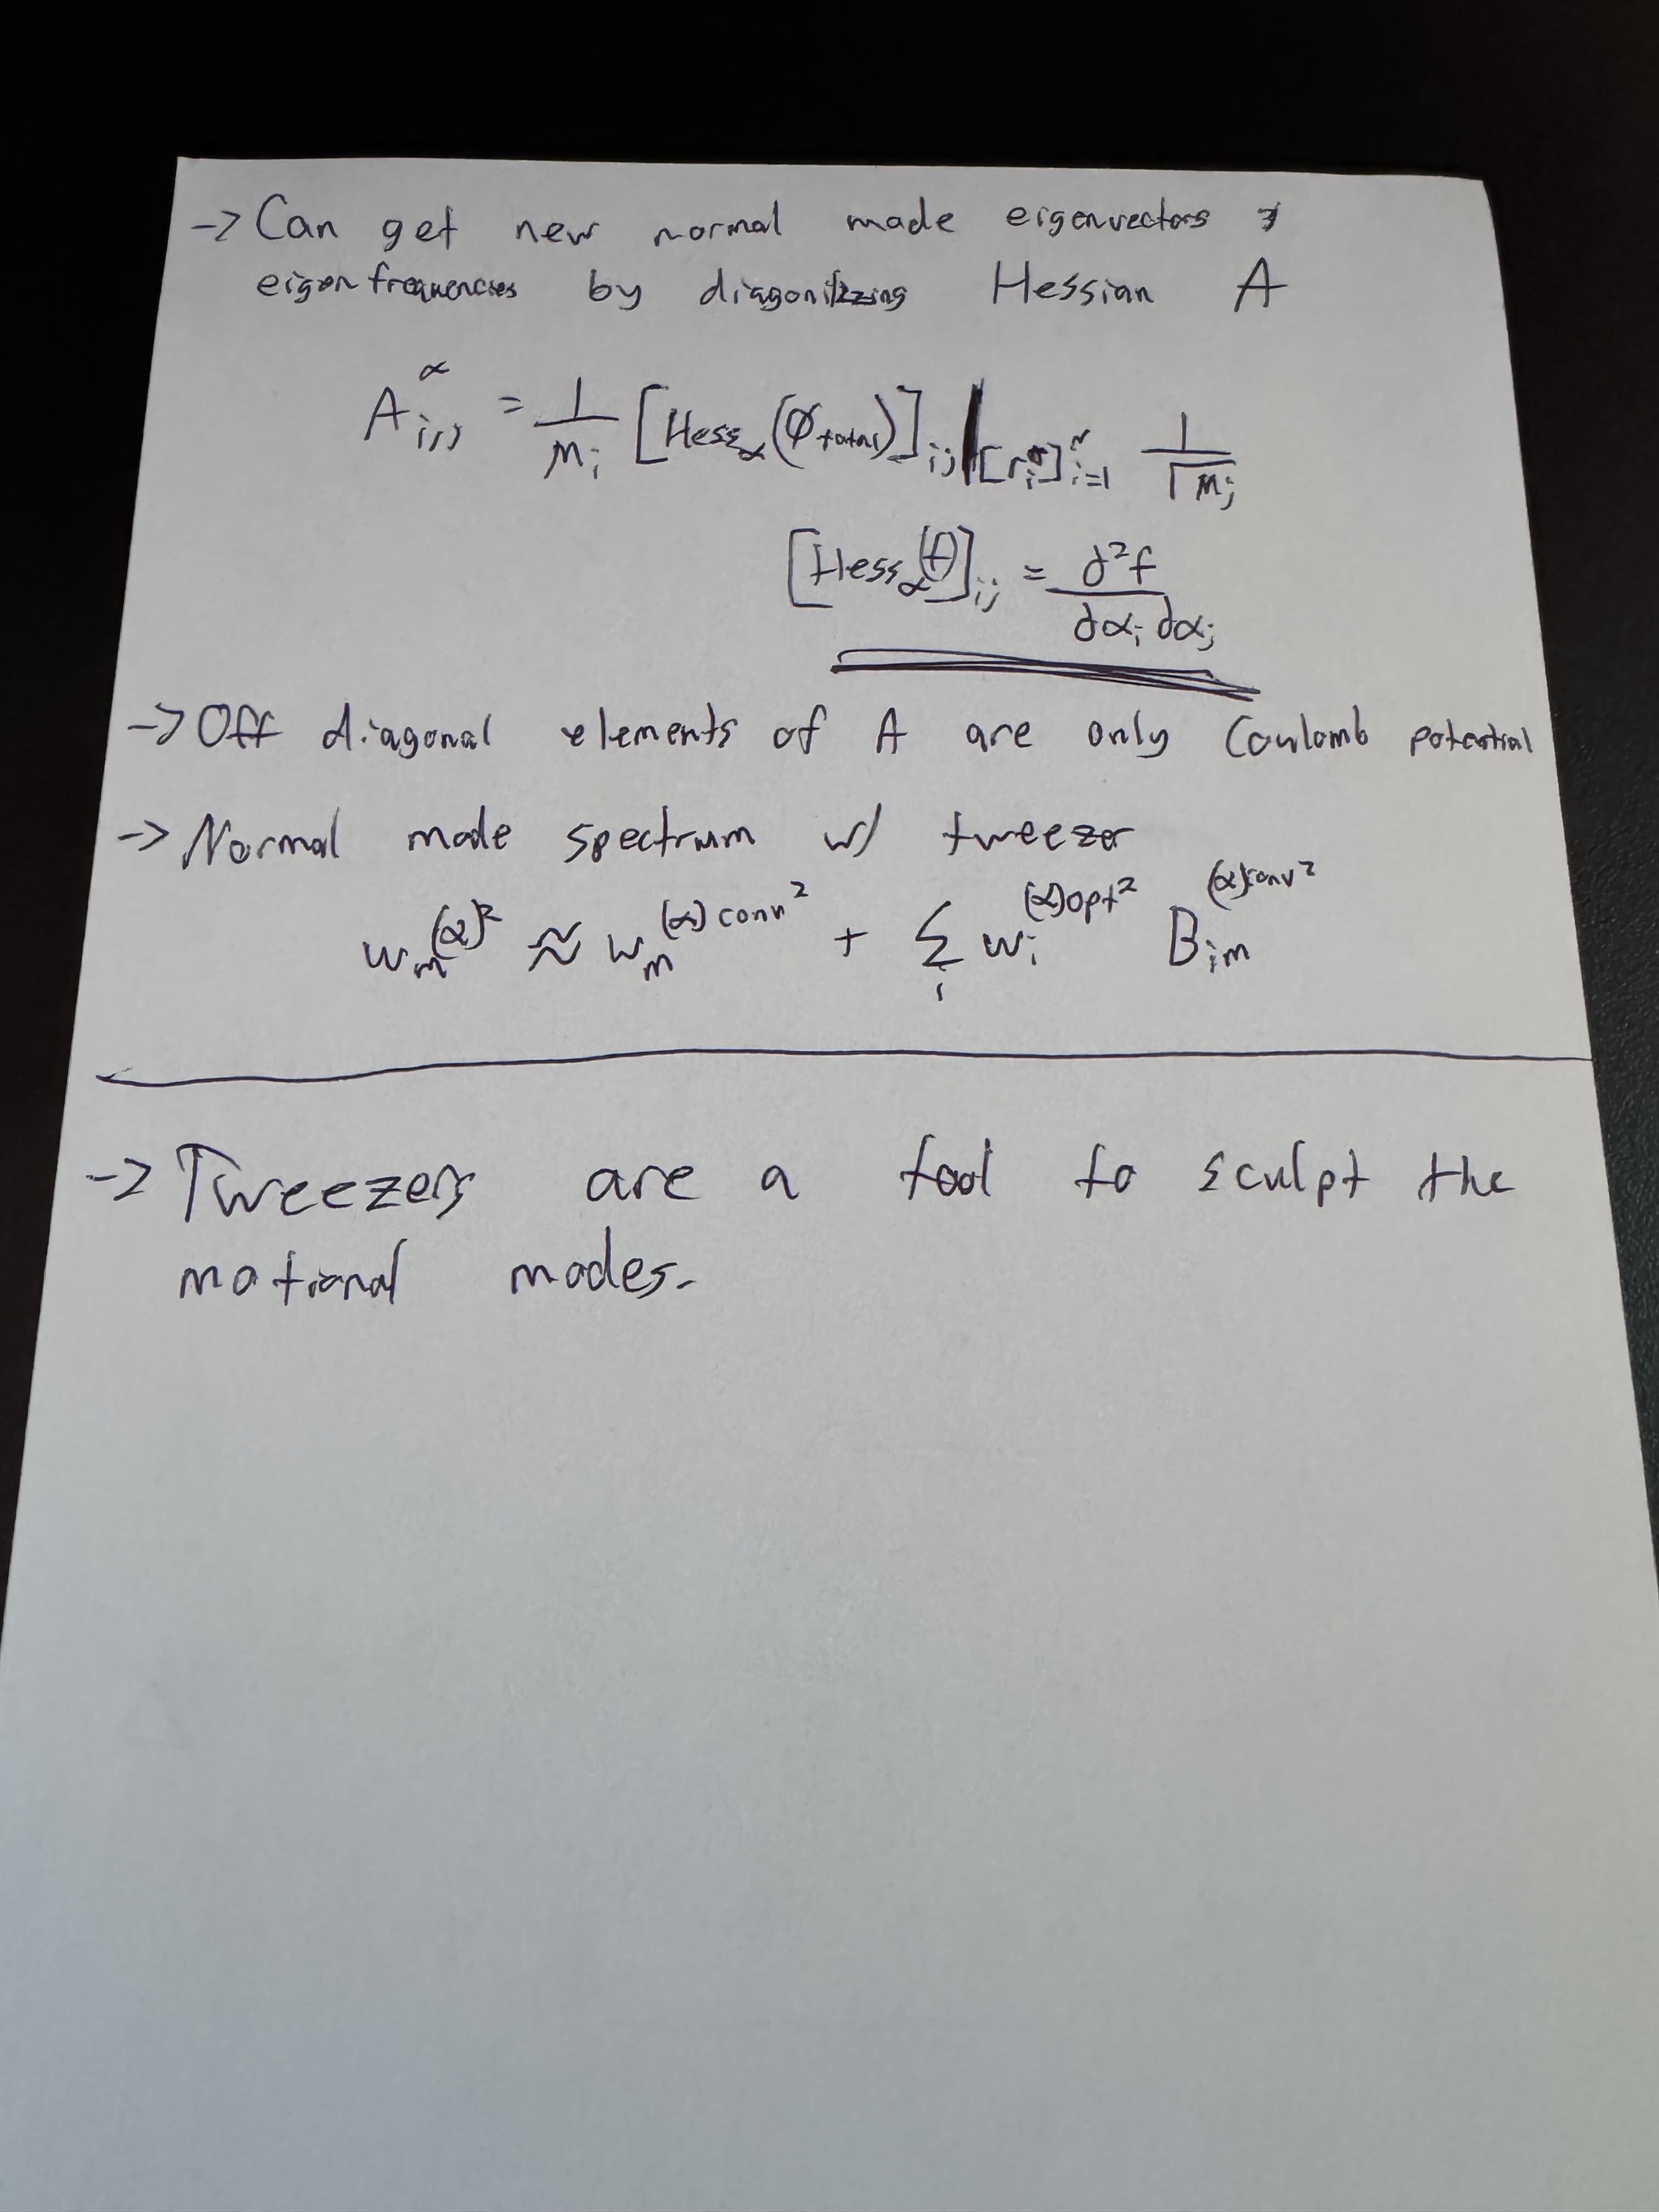 -> Can get new normal mode eigenvectors &
eigenfrequencies by diagonilizing Hessian A
A^α_{i,j} = 1/m_i [Hess_α(Φ_total)]_{ij} |_{[r_i^α]_{i=1}^N} 1/√m_j
[Hess_α(f)]_{ij} = ∂²f/∂α_i ∂α_j
-> Off diagonal elements of A are only Coulomb potential
-> Normal mode spectrum w/ tweezer
w_m^{(α)2} ≈ w_m^{(α)conv 2} + Σ_i w_i^{(α)opt 2} B_{im}^{(α)conv 2}
-> Tweezers are a tool to sculpt the
motional modes.